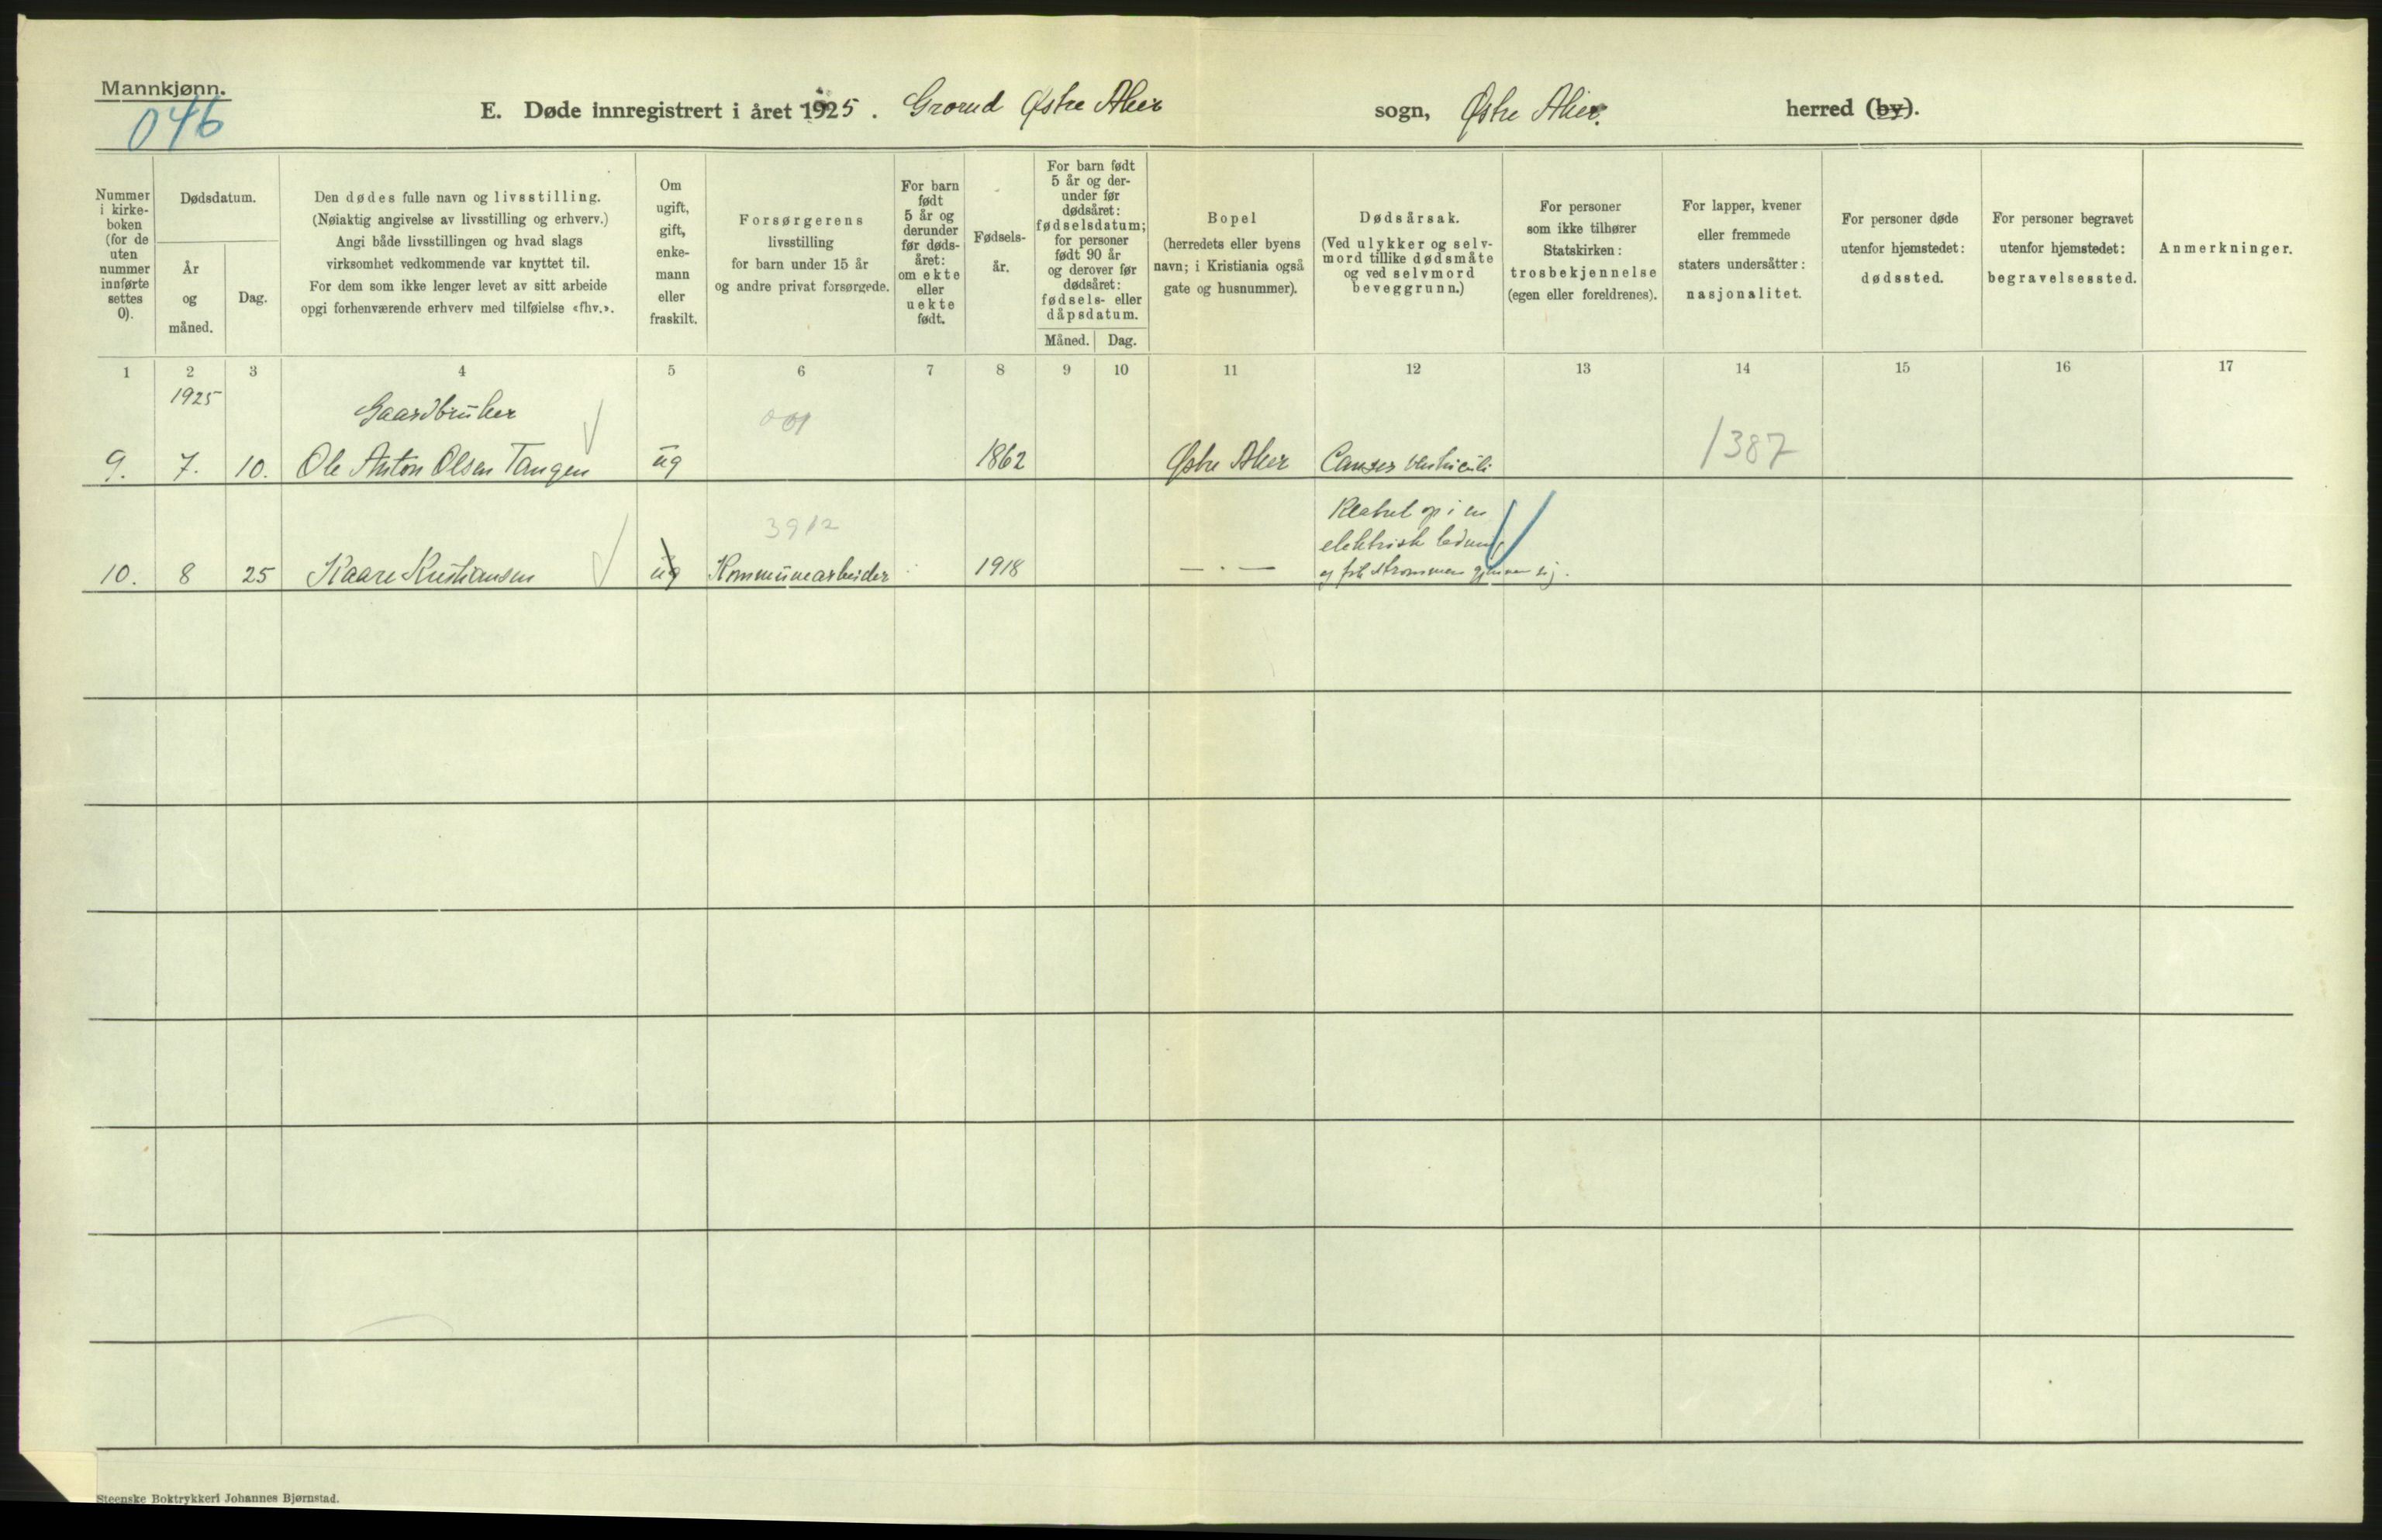 Mannkjønn.
046
E. Døde innregistrert i året 1925. Grorud Østre Aker sogn, Østre Aker. herred (by).
Nummer i kirke- boken (for de uten nummer innførte settes 0).
Dødsdatum.
År og måned.
Dag.
Den dødes fulle navn og livsstilling.
(Nøiaktig angivelse av livsstilling og erhverv.)
Angi både livsstillingen og hvad slags
virksomhet vedkommende var knyttet til.
For dem som ikke lenger levet av sitt arbeide
opgi forhenværende erhverv med tilføielse «fhv.».
Om ugift, gift, enke- mann eller fraskilt.
Forsørgerens
livsstilling
for barn under 15 år
og andre privat forsørgede.
For barn født 5 år og derunder før døds- året: om ekte eller uekte født.
Fødsels- år.
For barn født 5 år og der- under før dødsåret: fødselsdatum; for personer født 90 år og derover før dødsåret: fødsels- eller dåpsdatum.
Måned. Dag.
Bopel
(herredets eller byens
navn; i Kristiania også
gate og husnummer).
Dødsårsak.
(Ved ulykker og selv-
mord tillike dødsmåte
og ved selvmord
beveggrunn.)
For personer
som ikke tilhører
Statskirken:
trosbekjennelse
(egen eller foreldrenes).
For lapper, kvener
eller fremmede
staters undersåtter:
nasjonalitet.
For personer døde
utenfor hjemstedet:
dødssted.
For personer begravet
utenfor hjemstedet:
begravelsessted.
Anmerkninger.
1 2 3 4 5 6 7 8 9 10 11 12 13 14 15 16 17
1925
Gaardbruker
001
9. 7. 10. Ole Anton Olsen Tangen ug 1862 Østre Aker Cancer ventriculi 1387
3912
Klatret op i en
elektrisk ledning
10. 8 25 Kaare Kristiansen ug Kommunearbeider 1918 — . — og fik strømmen gjennem sig.
Steenske Boktrykkeri Johannes Bjørnstad.